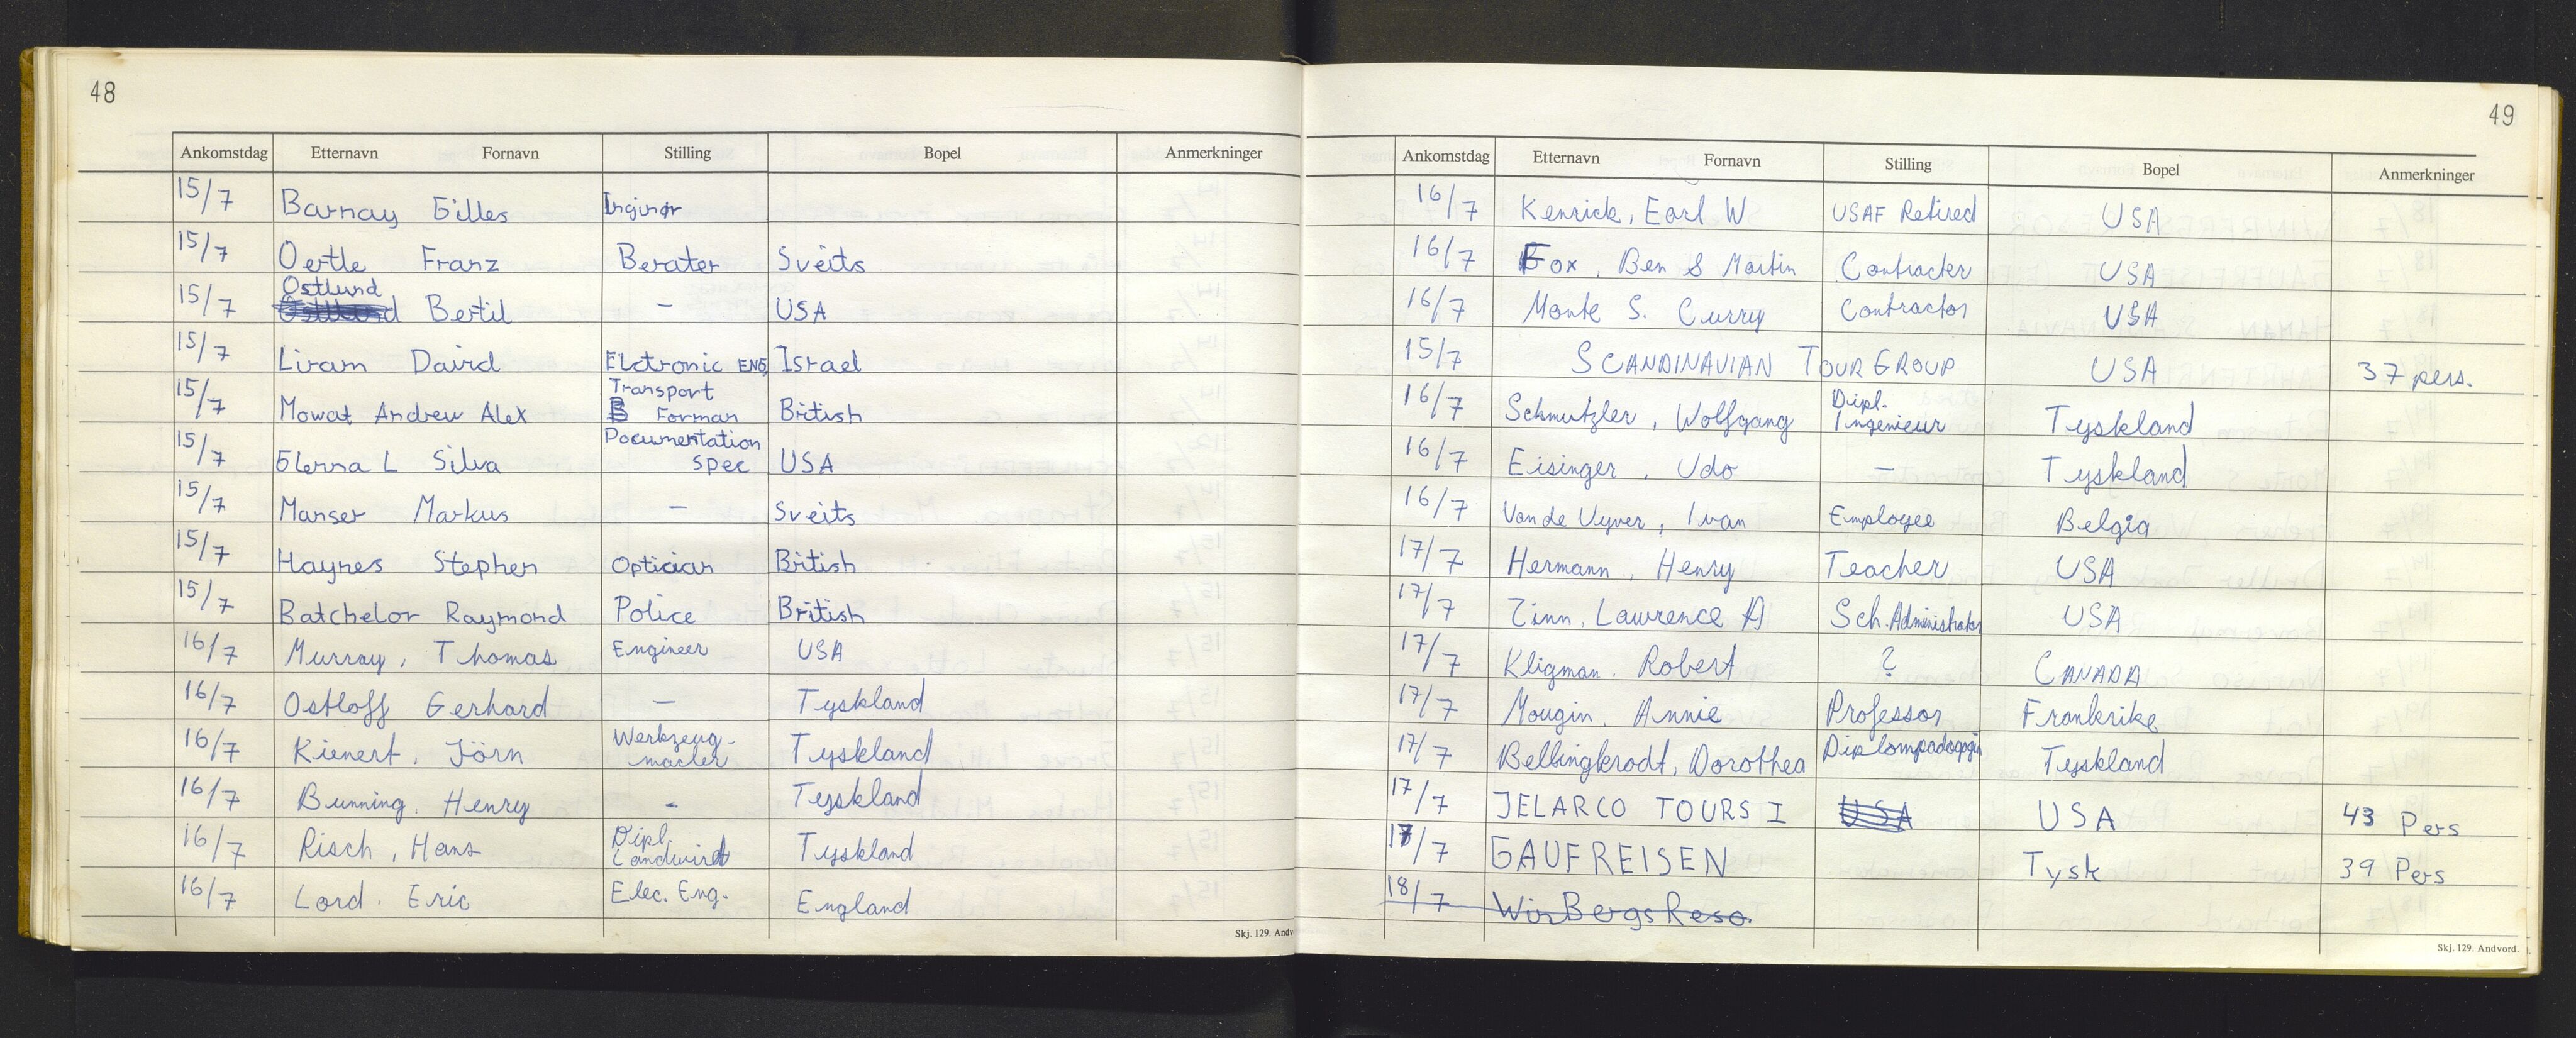 48
Ankomstdag Etternavn Fornavn Stilling Bopel Anmerkninger
15/7 Barnay Gilles Inginør
15/7 Oertle Franz Berater Sveits
Ostlund
15/7 Bertil – USA
15/7 Liram David Elctronic ENG Israel
Transport
15/7 Mowat Andrew Alex Forman British
Documentation
15/7 Glenna L Silva spec USA
15/7 Manser Markus – Sveits
15/7 Haynes Stephen Optician British
15/7 Batchelor Raymond Police British
16/7 Murray, Thomas Engineer USA
16/7 Ostloff Gerhard – Tyskland
16/7 Kienert, Jörn Werkzeug- Tyskland
macher
16/7 Bunning, Henry - Tyskland
16/7 Risch, Hans Dipl. Tyskland
Landwirt
16/7 Lord. Eric Elec. Eng. England
Skj. 129. Andv
49
Ankomstdag Etternavn Fornavn Stilling Bopel Anmerkninger
16/7 Kenrick, Earl W USAF Retired USA
16/7 Fox, Ben & Martin Contracter USA
16/7 Monte S. Curry Contractor USA
15/7 SCANDINAVIAN TOUR GROUP USA 37 pers.
Dipl.
16/7 Schmutzler, Wolfgang Ingenieur Tyskland
16/7 Eisinger, Udo – Tyskland
16/7 Van de Vyver, Ivan Employee Belgia
17/7 Hermann, Henry Teacher USA
17/7 Zinn, Lawrence A Sch. Administrator USA
17/7 Kligman. Robert ? CANADA
17/7 Mougin. Annie Professor Frankrike
17/7 Bellingkrodt, Dorothea Diplompadagogin Tyskland
17/7 JELARCO TOURS I USA USA 43 Pers
17/7 GAUFREISEN Tysk 39 Pers
18/7 WinBergs Reso.
Skj. 129. Andvord.